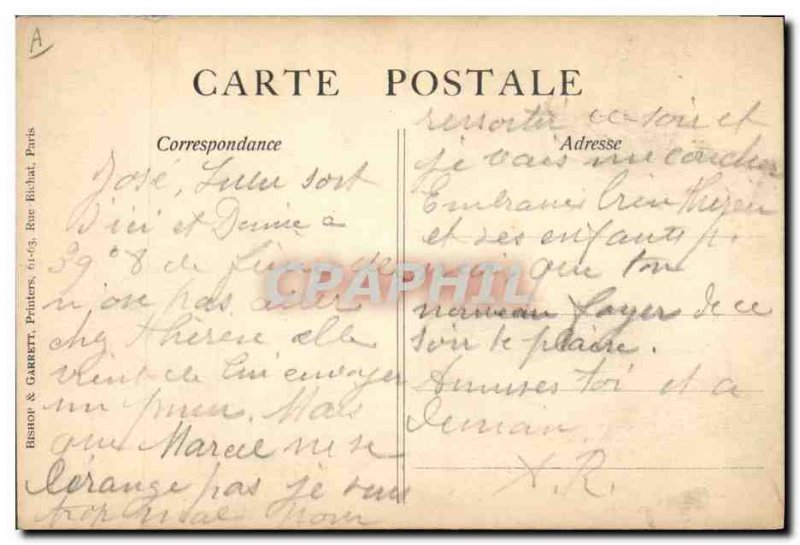 A
CARTE POSTALE
Correspondance
José, Lulu sort
d'ici et Denise a
39°8 de fièvre je
n'ose pas aller
chez Thérèse elle
vient de lui envoyer
un pneu. Mais
que Marcel ne se
dérange pas je suis
trop mal pour
Adresse
ressortir ce soir et
je vais me coucher
Embrasses bien Thérèse
et ses enfants p.
moi que ton
nouveau foyer de ce
soir te plaise.
Amuses toi et a
demain
X.R.
BISHOP & GARRETT, Printers, 61-63, Rue Bichat, Paris
CPAPHIL